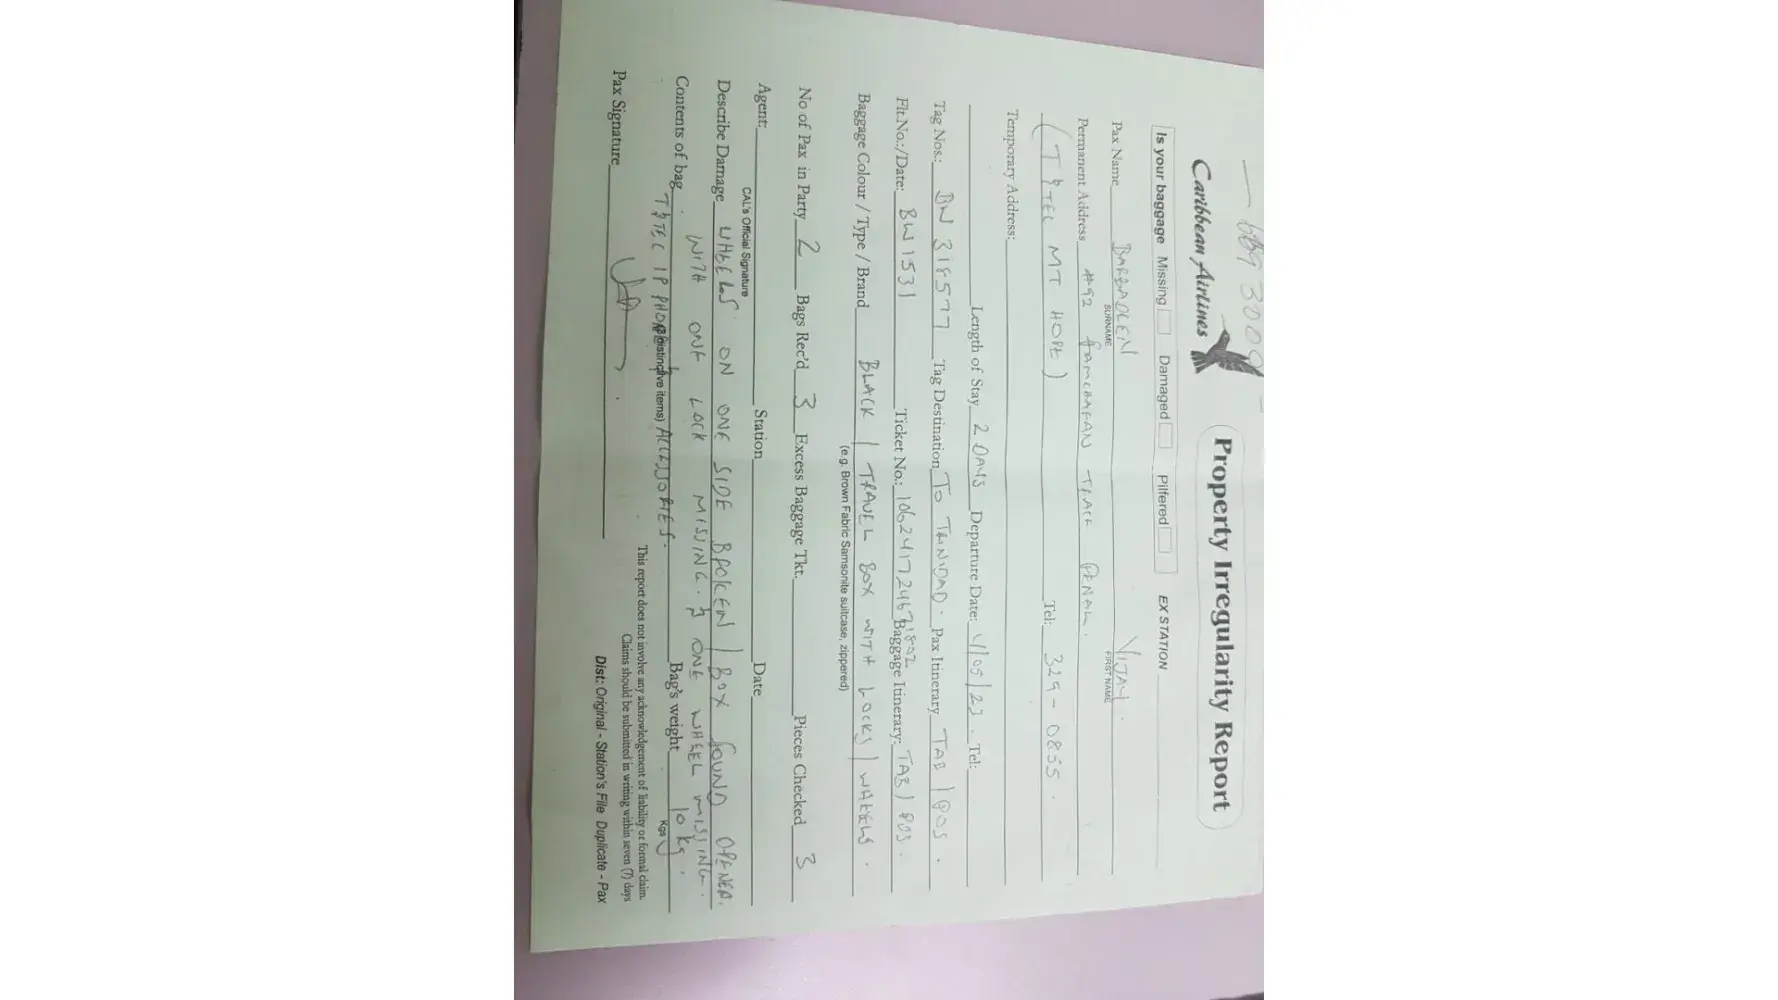 669 3009
Caribbean Airlines
Property Irregularity Report
Is your baggage Missing Damaged Pilfered EX STATION
Pax Name VIJAY.
SURNAME FIRST NAME
Permanent Address #92 TRACE PENAL.
(T&TEC MT HOPE) Tel: 329-0855.
Temporary Address:
Length of Stay 2 DAYS Departure Date: Tel:
Tag Nos.: BW 318577 Tag Destination TO TRINIDAD. Pax Itinerary TAB / POS.
Flt.No.:/Date: BW1531 Ticket No.: Baggage Itinerary: TAB / POS.
Baggage Colour / Type / Brand BLACK / TRAVEL BOX WITH LOCKS / WHEELS.
(e.g. Brown Fabric Samsonite suitcase, zippered)
No of Pax in Party 2 Bags Rec'd 3 Excess Baggage Tkt. Pieces Checked 3
Agent: Station Date
CAL's Official Signature
Describe Damage WHEELS ON ONE SIDE BROKEN / BOX FOUND OPENED.
WITH ONE LOCK MISSING. & ONE WHEEL MISSING.
Contents of bag T&TEC IP PHONE & ACCESSORIES. Bag's weight 10 kg.
(distinctive items) Kgs
Pax Signature
This report does not involve any acknowledgement of liability or formal claim.
Claims should be submitted in writing within seven (7) days
Dist: Original - Station's File Duplicate - Pax